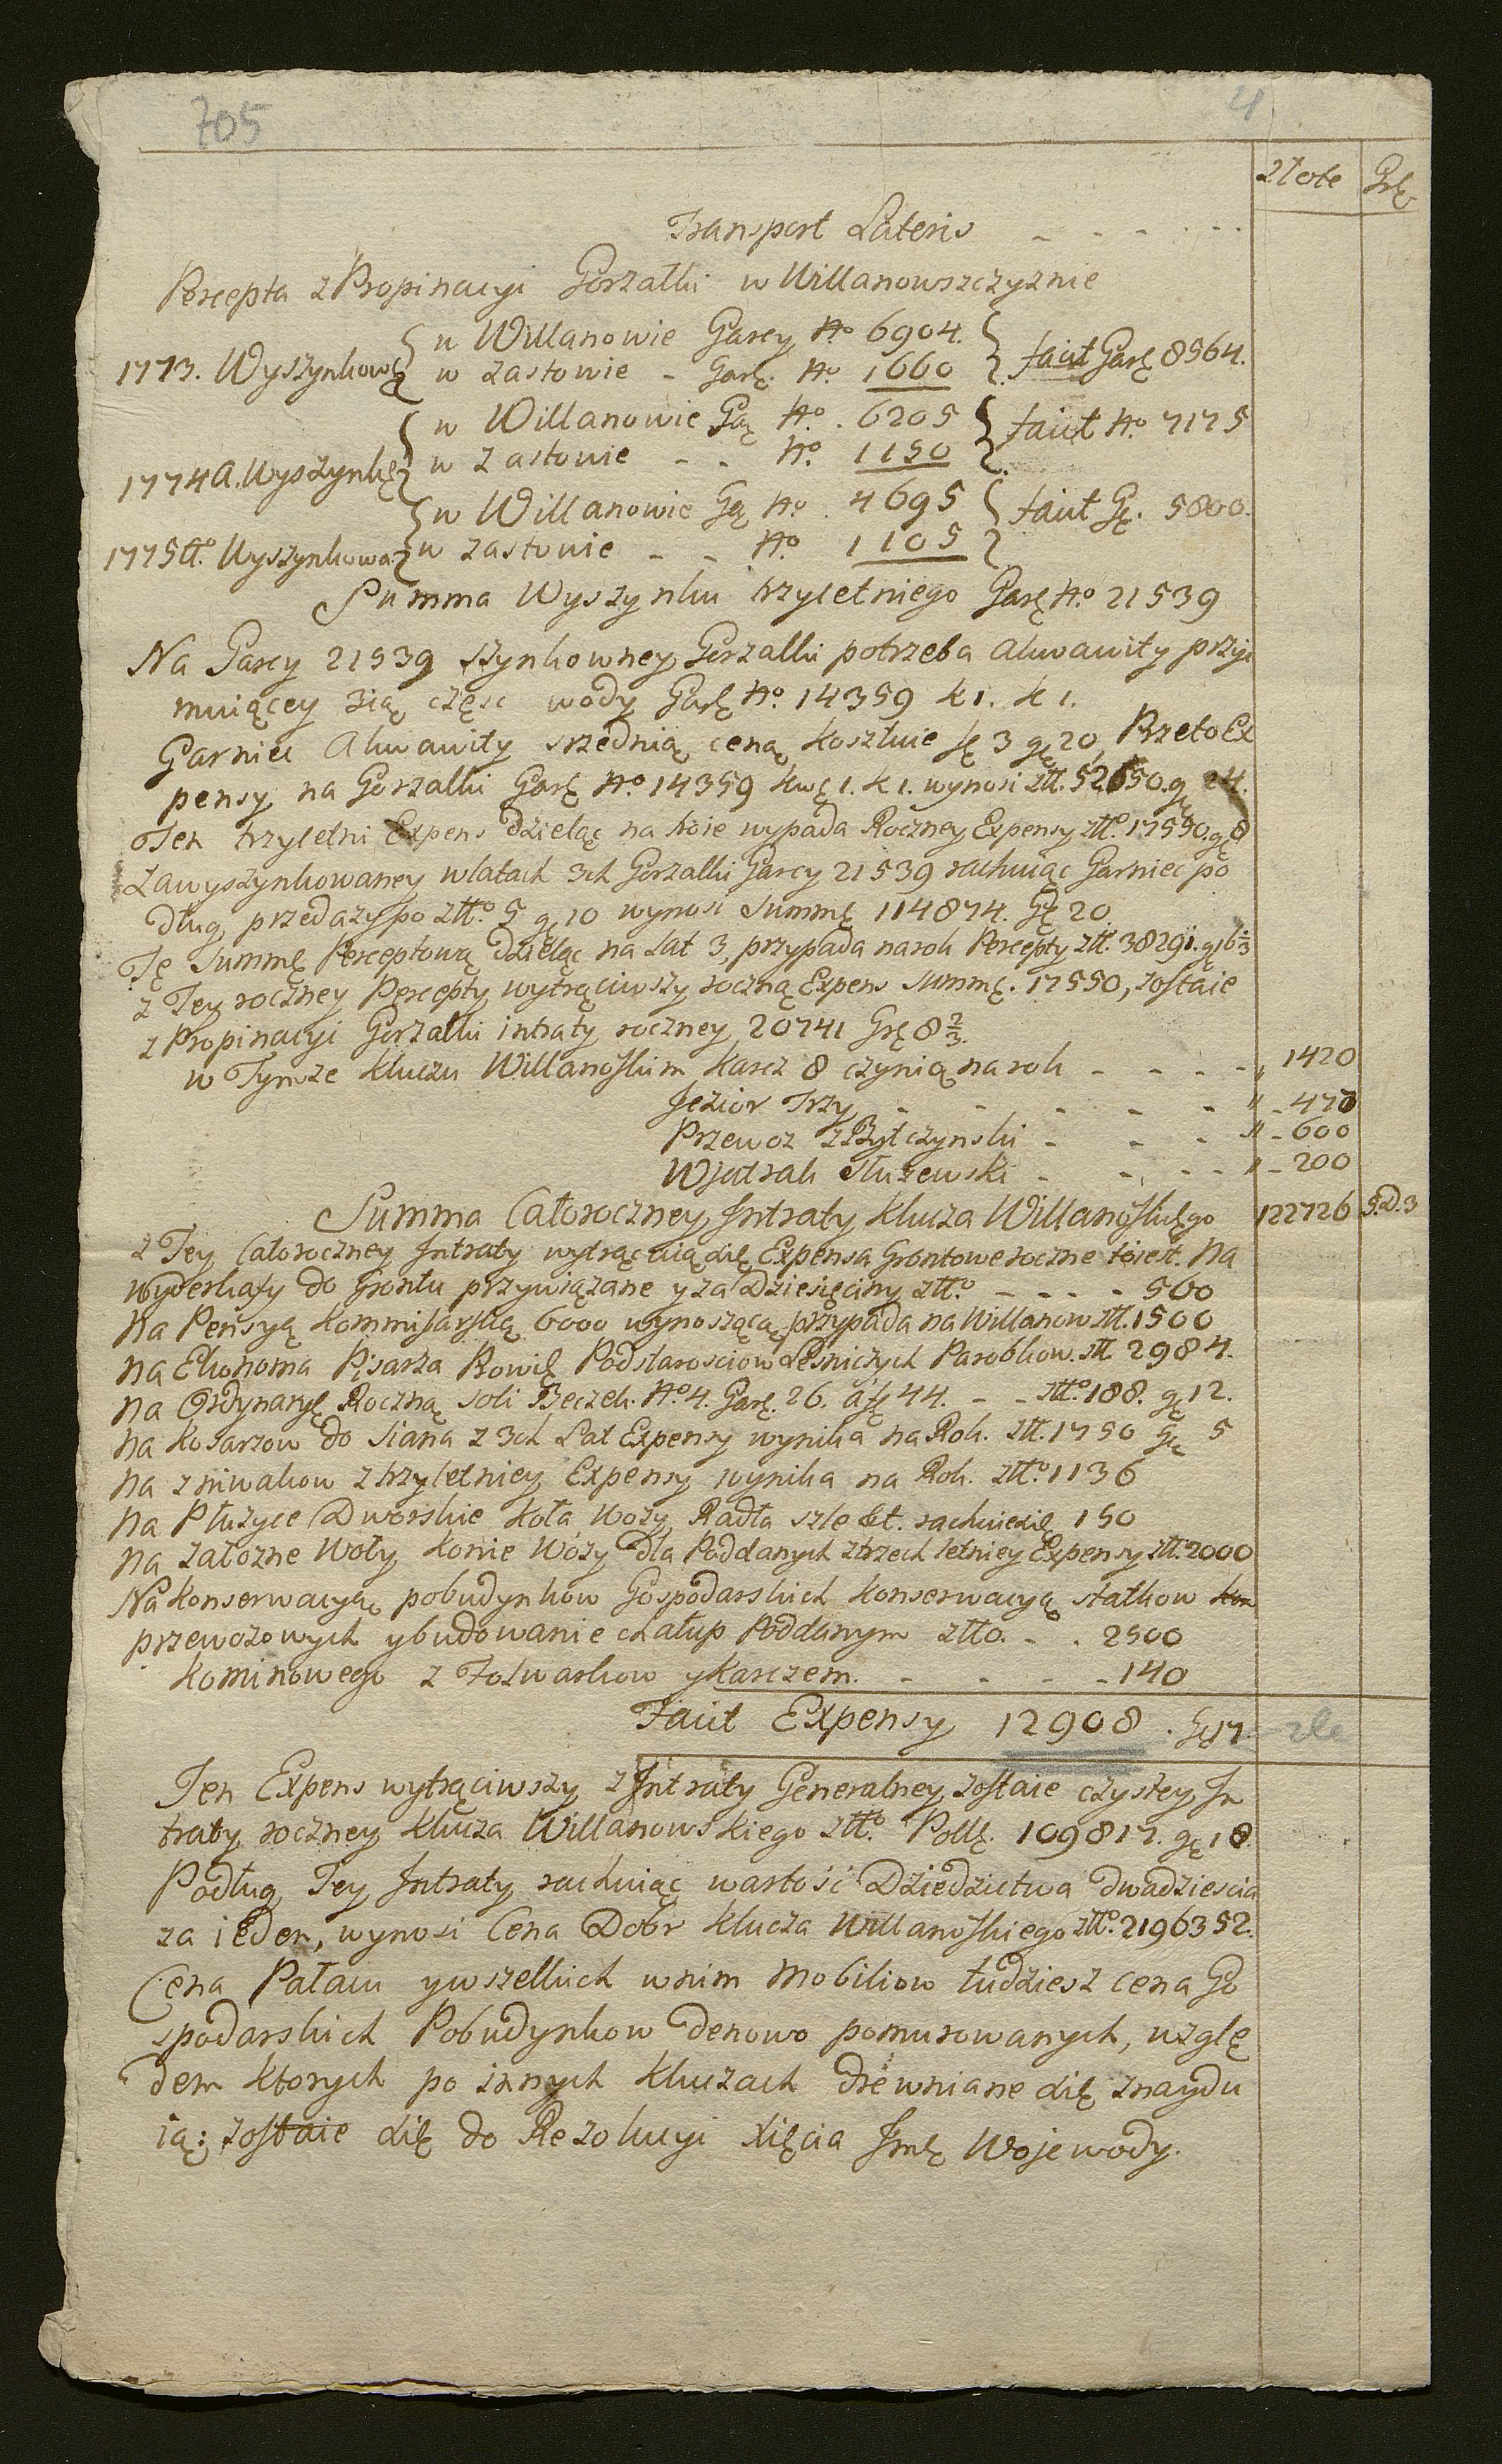 705
4
Złote Grę
Transport Lateris
Percepta z Propinacyi Gorzałki w Willanowszczyznie
w Willanowie Garcy No 6904.
1773. Wyszynkowę w Zastowie - Garę. No 1660 faiut Garę 8564.
w Willanowie Gą No. 6205 faiut No. 7175
1774 A. Wyszynkę w Zastowie - - No. 1150
w Willanowie Gą No. 4695 faiut Gę. 5800.
1775 tto. Wyszynkowa w Zastowie - - No. 1105
Summa Wyszynku trzyletniego Garę No 21539
Na Garcy 21539 szynkowney Gorzałki potrzeba Akwawity przyi
muiącey 3ią częsc wody Garę No. 14359 k 1. k 1.
Garniec Akwawity srzednią ceną kosztuie fę 3 gę 20, Przeto Ex
pensy na Gorzałki Garę No. 14359 kwę 1. k 1. wynosi ztt. 52650. gę 24.
Ten trzyletni Expens dzieląc na troie wypada Roczney Expensy ztto. 17550. gę 8
Zawyszynkowaney w latach 3ch Gorzałki Garcy 21539 rachuiąc Garniec po
dług przedazy po ztto. 5 g 10 wynosi Summę 114874. Gę 20
Tę Summę Perceptową dzieląc na Lat 3, przypada na rok Percepty ztt. 38291. gę 6 2/3
z Tey roczney Percepty wytrąciwszy roczną Expens Summę. 17550, zostaie
z Propinacyi Gorzałki intraty roczney 20741 Grę 8 2/3.
w Tymze kluczu Willanoskim Karcz 8 czynią na rok - - - - „ 1420
Jezior Trzy - - - - - „ - 470
Przewoz z Bytczynski - - - „ - 600
Wiatrak Słuzewski - - - - „ - 200
Summa Całoroczney Intraty klucza Willanoskiego 122726 5. D. 3
z Tey Całoroczney Intraty wytrącaią się Expensa Grontowe roczne to iest. Na
wyderkafy do Grontu przywiązane y za Dziesięciny ztto. - - - - 560
Na Pensyą Kommisarską 6000 wynoszącą, przypada na Willanow ztt. 1500
na Ekonoma Pisarza Rowię Podstarosciow Lesniczych Parobkow. ztt 2984.
na Ordynaryę Roczną Soli Beczek. No. 4. Garę. 26. á fę 44. - - ztto. 188. gę 12.
na Kosarzow do Siana z 3ch Lat Expensy wynika na Rok. ztt. 1750 Gę 5
na zniwakow z trzyletniey Expensy wynika na Rok. ztto. 1136
na Płuzyce Dworskie koła wozy Radła szle &t. rachuie się 150
na załozne Woły konie Wozy dla Poddanych z trzech letniey Expensy ztt. 2000
Na konserwacyą pobudynkow Gospodarskich konserwacyą statkow kon
przewozowych y budowanie chałup Poddanym ztto. - . 2500
kominowego z Folwarkow y karczem. - - - - 140
Faiut Expensy 12908. Gę 17. - złe
Ten Expens wytrąciwszy z Intraty Generalney zostaie czystey In
traty roczney klucza Willanowskiego ztto. Polę. 109817. gę 18.
Podług Tey Intraty rachuiąc wartość Dziedzictwa dwadziescia
za ieden, wynosi Cena Dobr klucza Willanoskiego ztto. 2196352.
Cena Pałacu y wszelkich w nim Mobiliow tudziesz cena Go
spodarskich Pobudynkow denowo pomurowanych, wzglę
dem ktorych po innych kluczach drewniane się znaydu
ią: zostaie się do Rezolucyi Xięcia Jmę Wojewody.